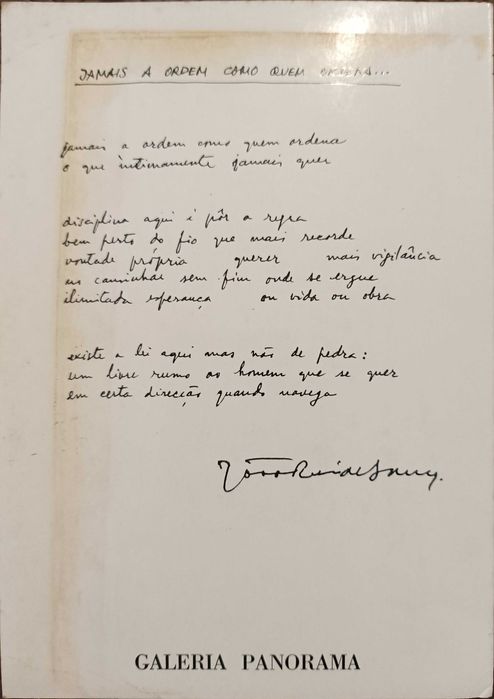 JAMAIS A ORDEM COMO QUEM ORDENA...
jamais a ordem como quem ordena
o que intimamente jamais quer
disciplina aqui é pôr a regra
bem perto do fio que mais recorde
vontade própria querer mais vigilância
no caminhar sem fim onde se ergue
ilimitada esperança ou vida ou obra
existe a lei aqui mas não de pedra:
um livre rumo ao homem que se quer
em certa direcção quando navega
João Rui de Sousa
GALERIA PANORAMA